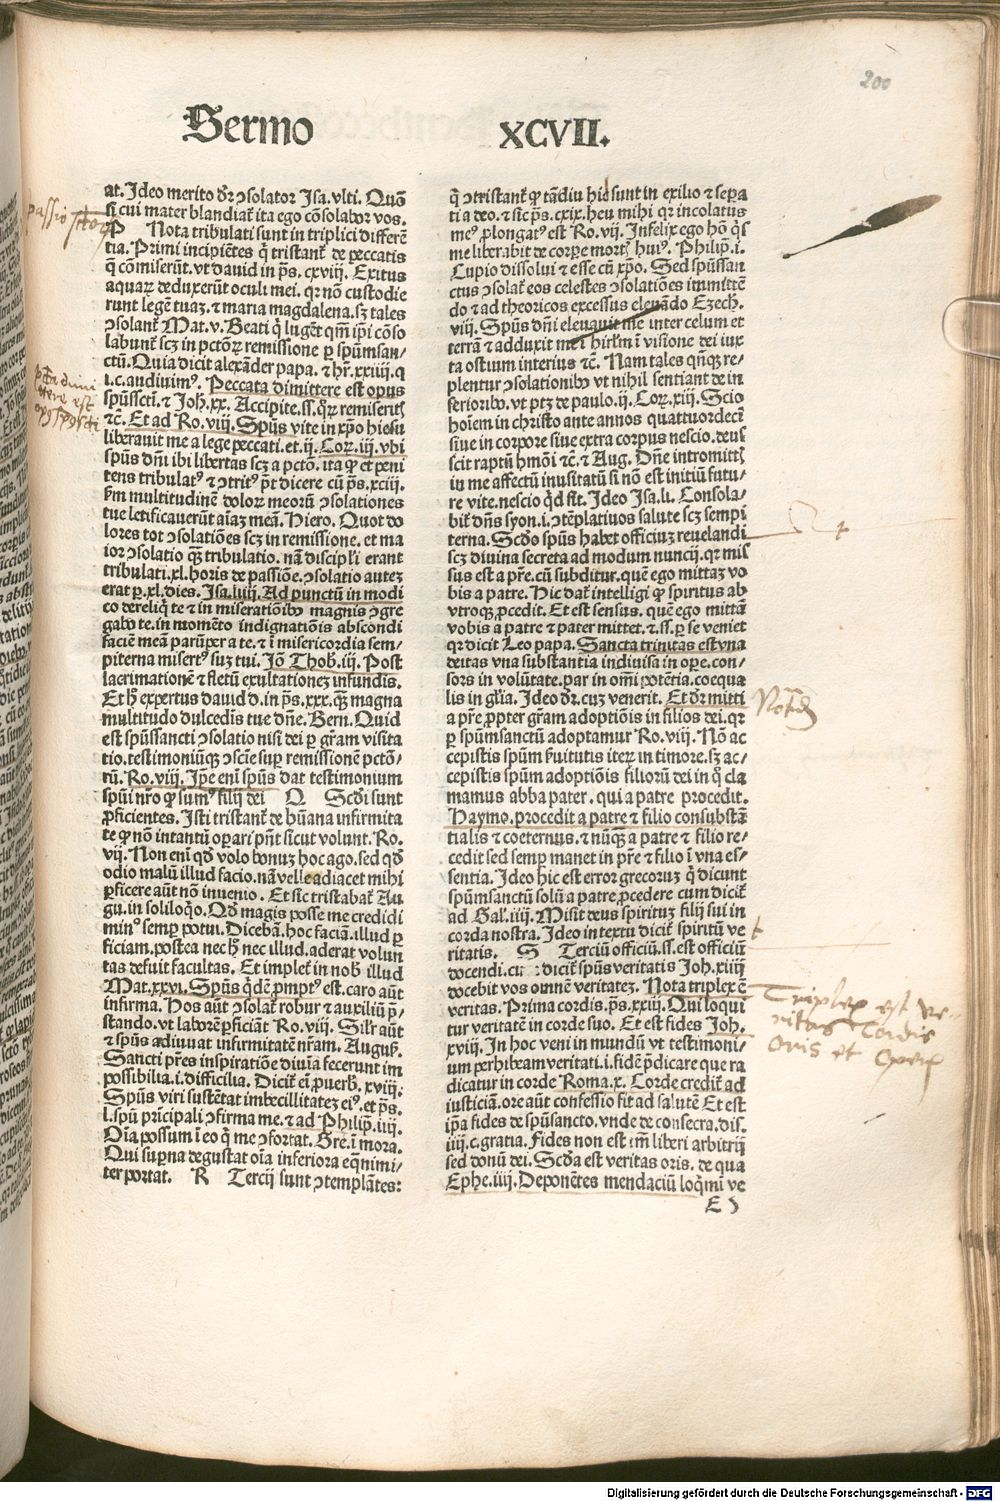 200
Sermo XCVII.
at. Ideo merito dr̄ ꝯsolator Isa. vlti. Quō
si cui mater blandiat᷒ ita ego cōsolabor vos.
P Nota tribulati sunt in triplici differē
tia. Primi incipiētes q̄ tristant᷒ de peccatis
q̄ cōmiserūt. vt dauid in ps̄. cxviii. Exitus
aquaꝝ deduxerūt oculi mei. qꝛ nō custodie
runt legē tuaꝫ. ⁊ maria magdalena. sꝫ tales
ꝯsolant᷒ Mat. v. Beati q̄ lugēt qm̄ ip̄i cōso
labunt᷒ scꝫ in pctōꝝ remissione ꝑ spūmsan⸗
ctū. Quia dicit alexāder papa. ⁊ hr̄. xxiiii. q
i. c. audiuimꝰ. Peccata dimittere est opus
spūsscti. ⁊ Joh. xx. Accipite. ss. qꝝ remiserit᷒
⁊c. Et ad Ro. viii. Spūs vite in xp̄o hiesu
liberauit me a lege peccati. et. ii. Coꝝ. iii. vbi
spūs dn̄i ibi libertas scꝫ a pctō. ita ꝙ et peni
tens tribulatꝰ ⁊ ꝯtritꝰ pt̄ dicere cū ps̄. xciii.
ẜm multitudinē doloꝝ meoꝝ ꝯsolationes
tue letificauerūt aīaꝫ meā. Hiero. Quot do
lores tot ꝯsolatiōes scꝫ in remissione. et ma
ior ꝯsolatio qꝫ tribulatio. nā discipl̄i erant
tribulati. xl. horis de passiōe. ꝯsolatio auteꝫ
erat ꝑ. xl. dies. Isa. liiii. Ad punctū in modi
co dereliq̄ te ⁊ in miseratiōibꝰ magnis ꝯgre
gabo te. in momēto indignatiōis abscondi
faciē meā parūꝑ a te. ⁊ ī misericordia sem⸗
piterna misertꝰ suꝫ tui. Iō Thob. iii. Post
lacrimationē ⁊ fletū exultationeꝫ infundis.
Et h̄ exꝑtus dauid d. in ps̄. xxx. qꝫ magna
multitudo dulcedis tue dn̄e. Bern. Quid
est spūssancti ꝯsolatio nisi dei ꝑ gr̄am visita
tio. testimoniūqꝫ ꝯscīe suꝑ remissionē pctō⸗
rū. Ro. viii. Ip̄e eni spūs dat testimonium
spūi nr̄o ꝙ sumꝰ filij dei Q Scd̄i sunt
ꝓficientes. Isti tristant᷒ de hūana infirmita
te ꝙ nō intantū oꝑari pn̄t sicut volunt. Ro.
vii. Non enī qd̄ volo bonuꝫ hoc ago. sed qd̄
odio malū illud facio. nā velle adiacet mihi
ꝑficere aūt nō inuenio. Et sic tristabat᷒ Au
gu. in soliloq̄o. Qd̄ magis posse me credidi
minꝰ semꝑ potui. Dicebā. hoc faciā. illud ꝑ
ficiam. postea nec h̄ nec illud. aderat volun
tas defuit facultas. Et implet᷒ in nob̄ illud
Mat. xxvi. Spūs q̄dē ꝓmptꝰ est. caro aūt
infirma. Hos aūt ꝯsolat᷒ robur ⁊ auxiliū p̄⸗
stando. vt laborē ꝑficiāt Ro. viii. Silr̄ aūt
⁊ spūs adiuuat infirmitatē nr̄am. August᷒.
Sancti pr̄es inspiratiōe diuīa fecerunt im
possibilia. i. difficilia. Dicit᷒ em̄ ꝓuerb. xviii.
Spūs viri sustētat imbecillitateꝫ eiꝰ. et ps̄.
l. spū prīcipali ꝯfirma me. ⁊ ad Philip. iiii.
Oīa possum ī eo q̄ me ꝯfortat. Gre. ī mora.
Qui suꝑna degustat oīa inferiora eq̄nimi⸗
ter portat. R Tercij sunt ꝯtemplātes:
q̄ ꝯtristant᷒ ꝙ tādiu hic sunt in exilio ⁊ seꝑa
ti a deo. ⁊ sic ps̄. cxix. heu mihi qꝛ incolatus
meꝰ ꝓlongatꝰ est Ro. vii. Infelix ego hō q̄s
me liberabit de corꝑe mort᷒ huiꝰ. Philip. i.
Cupio dissolui ⁊ esse cū xp̄o. Sed spūssan
ctus ꝯsolat᷒ eos celestes ꝯsolatiōes immittē
do ⁊ ad theoricos excessus eleuādo Ezech.
viii. Spūs dn̄i eleuauit me inter celum et
terrā ⁊ adduxit me ī hirlm̄ ī visione dei iux
ta ostium interius ⁊c. Nam tales qn̄qꝫ re⸗
plentur ꝯsolationibꝰ vt nihil sentiant de in
feriorībꝰ. vt ptꝫ de paulo. ii. Coꝝ. xiii. Scio
hoīem in christo ante annos quattuordecē
siue in corpore siue extra corpus nescio. deus
scit raptū hmōi ⁊c. ⁊ Aug. Dn̄e intromitt᷒
in me affectū inusitatū si nō est initiū futu⸗
re vite. nescio qd̄ sit. Ideo Isa. li. Consola⸗
bit᷒ dn̄s syon. i. ꝯtēplatiuos salute scꝫ sempi
terna. Scd̄o spūs habet officiuꝫ reuelandi
scꝫ diuina secreta ad modum nuncij. qꝛ mis
sus est a pr̄e. cū subditur. quē ego mittaꝫ vo
bis a patre. Hic dat᷒ intelligi ꝙ spiritus ab
vtroqꝫ ꝓcedit. Et est sensus. quē ego mittā
vobis a patre ⁊ pater mittet. ⁊. ss. ꝑ se veniet
qꝛ dicit Leo papa. Sancta trinitas est vna
deitas vna substantia indiuisa in oꝑe. con⸗
sors in volūtate. par in om̄i potētia. coequa
lis in gl̄ia. Ideo dr̄. cuꝫ venerit. Et dr̄ mitti
a pr̄e. ꝓpter gr̄am adoptiōis in filios dei. qꝛ
ꝑ spūmsanctū adoptamur Ro. viii. Nō ac
cepistis spūm ẜuitutis iteꝝ in timore. sꝫ ac⸗
cepistis spūm adoptiōis filiorū dei in q̄ cla
mamus abba pater. qui a patre procedit.
Haymo. procedit a patre ⁊ filio consubstā
tialis ⁊ coeternus. ⁊ nūqꝫ a patre ⁊ filio re⸗
cedit sed semꝑ manet in pr̄e ⁊ filio ī vna es⸗
sentia. Ideo hic est error grecoruꝫ q̄ dicunt
spūmsanctū solū a patre ꝓcedere cum dicit᷒
ad Gal. iiii. Misit deus spirituꝫ filij sui in
corda nostra. Ideo in textu dicit᷒ spiritū ve
ritatis. S Terciū officiū. ss. est officiū
docendi. cū dicit᷒ spūs veritatis Joh. xiiii
docebit vos omnē veritateꝫ. Nota triplex ē
veritas. Prima cordis. ps̄. xxiii. Qui loqui
tur veritatē in corde suo. Et est fides Joh.
xviii. In hoc veni in mundū vt testimoni⸗
um perhibeam veritati. i. fidē p̄dicare que ra
dicatur in corde Roma. x. Corde credit᷒ ad
iusticiā. ore aūt confessio fit ad salutē Et est
ip̄a fides de spūsancto. vnde de consecra. dis.
iiii. c. gratia. Fides non est im̄ liberi arbitrij
sed donū dei. Scd̄a est veritas oris. de qua
Ephe. iiii. Deponētes mendaciū loq̄mi ve
E
passio
Triplex est ve⸗
ritas Cordis
Oris et Operis
Digitalisierung gefördert durch die Deutsche Forschungsgemeinschaft - DFG